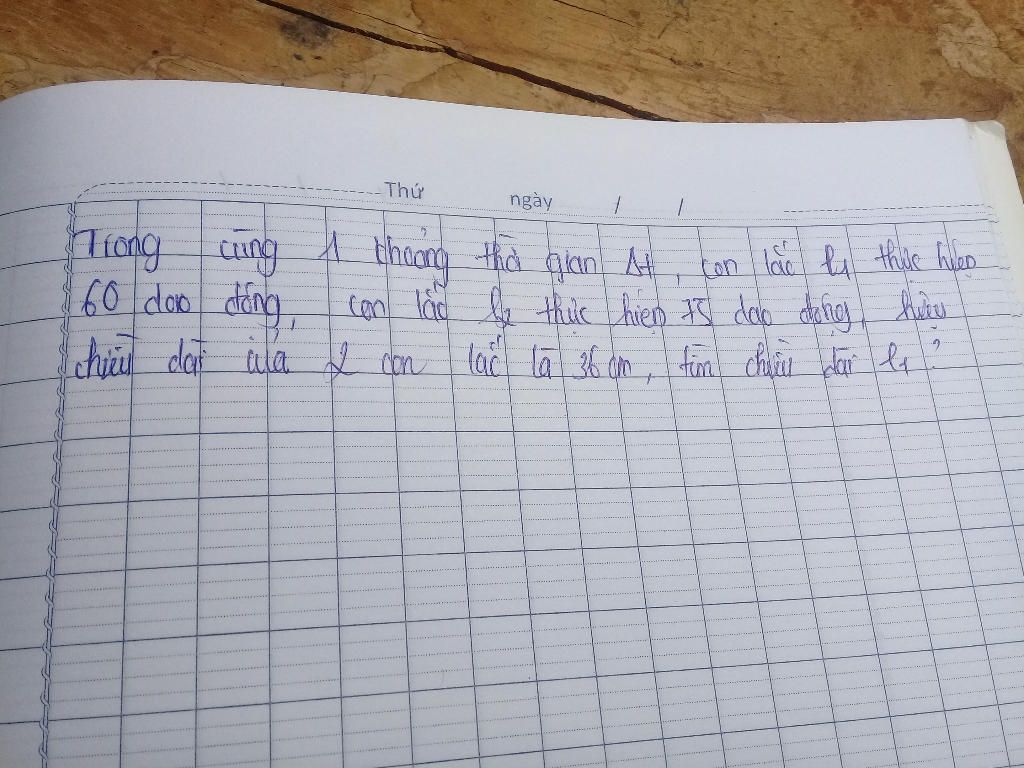 Thứ ngày / /
Trong cùng 1 khoảng thời gian Δt, con lắc l1 thực hiện
60 dao động, con lắc l2 thực hiện 75 dao động, hiệu
chiều dài của 2 con lắc là 36 cm, tìm chiều dài l1?